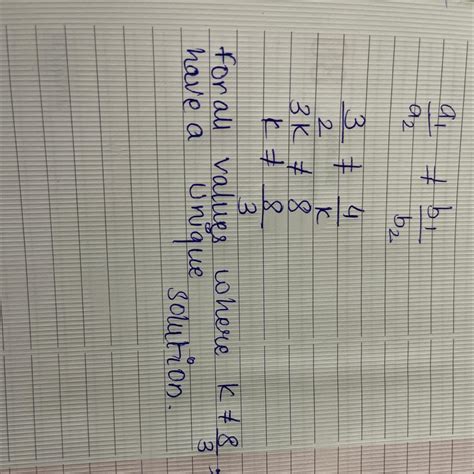 a1/a2 ≠ b1/b2
3/2 ≠ 4/k
3k ≠ 8
k ≠ 8/3
for all values where k ≠ 8/3,
have a unique solution.